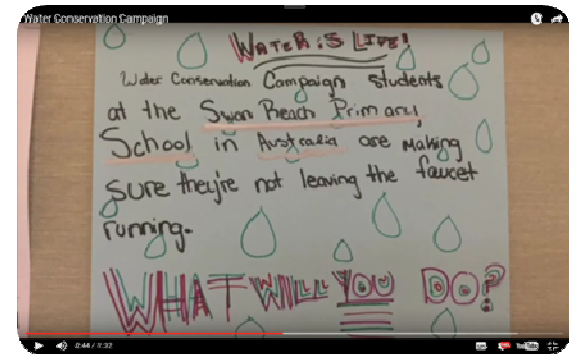 Water Conservation Campaign
WATER iS LIFE!
Water Conservation Campaign students
at the Swan Reach Primary
School in Australia are making
sure they're not leaving the faucet
running.
WHAT WILL YOU DO?
0:44 / 1:32
YouTube